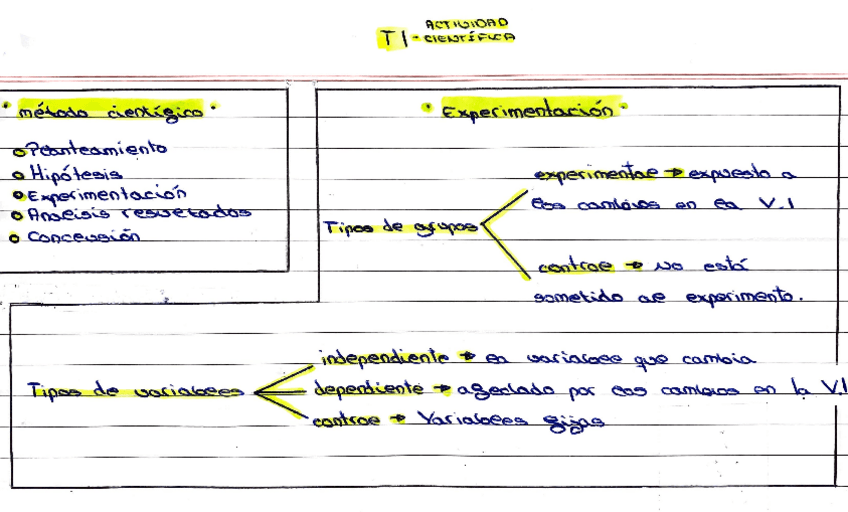 T1 - ACTIVIDAD
CIENTÍFICA
• método científico •
Planteamiento
Hipótesis
Experimentación
Análisis resultados
Conclusión
• Experimentación •
Tipos de grupos
experimental → expuesto a
los cambios en la V.I
control → no está
sometido al experimento.
Tipos de variables
independiente → la variable que cambia
dependiente → afectado por los cambios en la V.I
control → Variables fijas